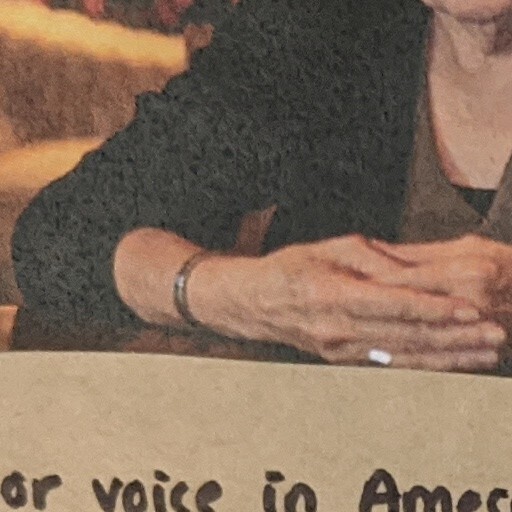 or voice in Amer